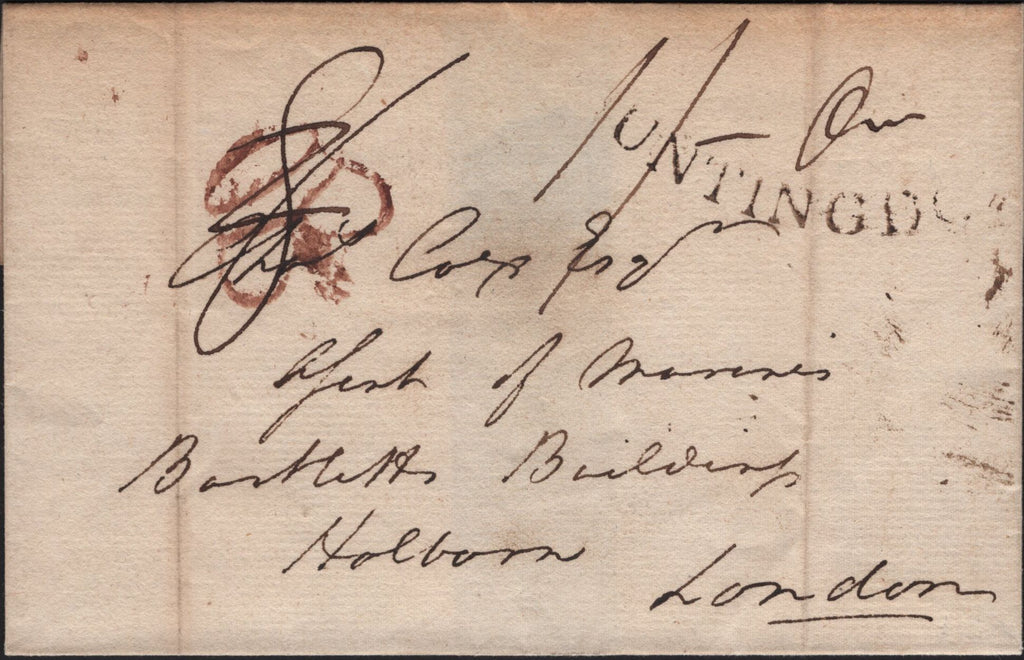 On
UNTINGDO
Thos Cox Esqr
Agent of Marines
Bartletts Buildings
Holborn
London